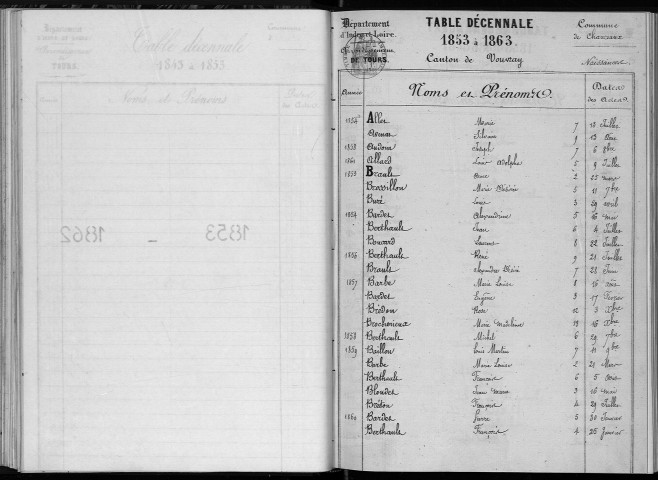 Département
d'Indre-et-Loire.
Arrondissement
DE TOURS.
TABLE DÉCENNALE
1853 à 1863
Canton de Vouvray
Commune
de Chanceaux
Naissances
Année
Noms et Prénoms.
Dates
des Actes.
1854 Aller Marie 7 13 Juillet
Silvain 9 13
1858 Audoin Joseph 7 6 9bre
1860 Allard Louis Adolphe 5 9 Juillet
1853 Brault 2 25 mars
Bressillon Marie Désirée 5 11 7bre
Buré Louis 3 29 avril
1854 Bardet Alexandrine 5 16 mai
Berthault Jean 6 4 Juillet
Bouard 8 22 Juillet
1856 Berthault René 9 21 Juillet
Brault Alexandre Désiré 7 23 Juin
1857 Barbe Marie Louise 8 16
Bardet Eugène 3 17 Février
Bredon Rose 12 3 Xbre
Marie Madeleine 13 16 Xbre
1858 Berthault Michel 6 29 7bre
1859 Baillon Louis Martin 7 11 9bre
Barbe Marie Louise 2 21 Mars
Berthault Françoise 6 5
Blondet Jean Marie 3 16 mai
Breton François 4 29 Juillet
1860 Bardet Pierre 5 30 Janvier
Berthault François 4 25 Janvier
Table décennale
1843 à 1853
Noms et Prénoms
1853 - 1862